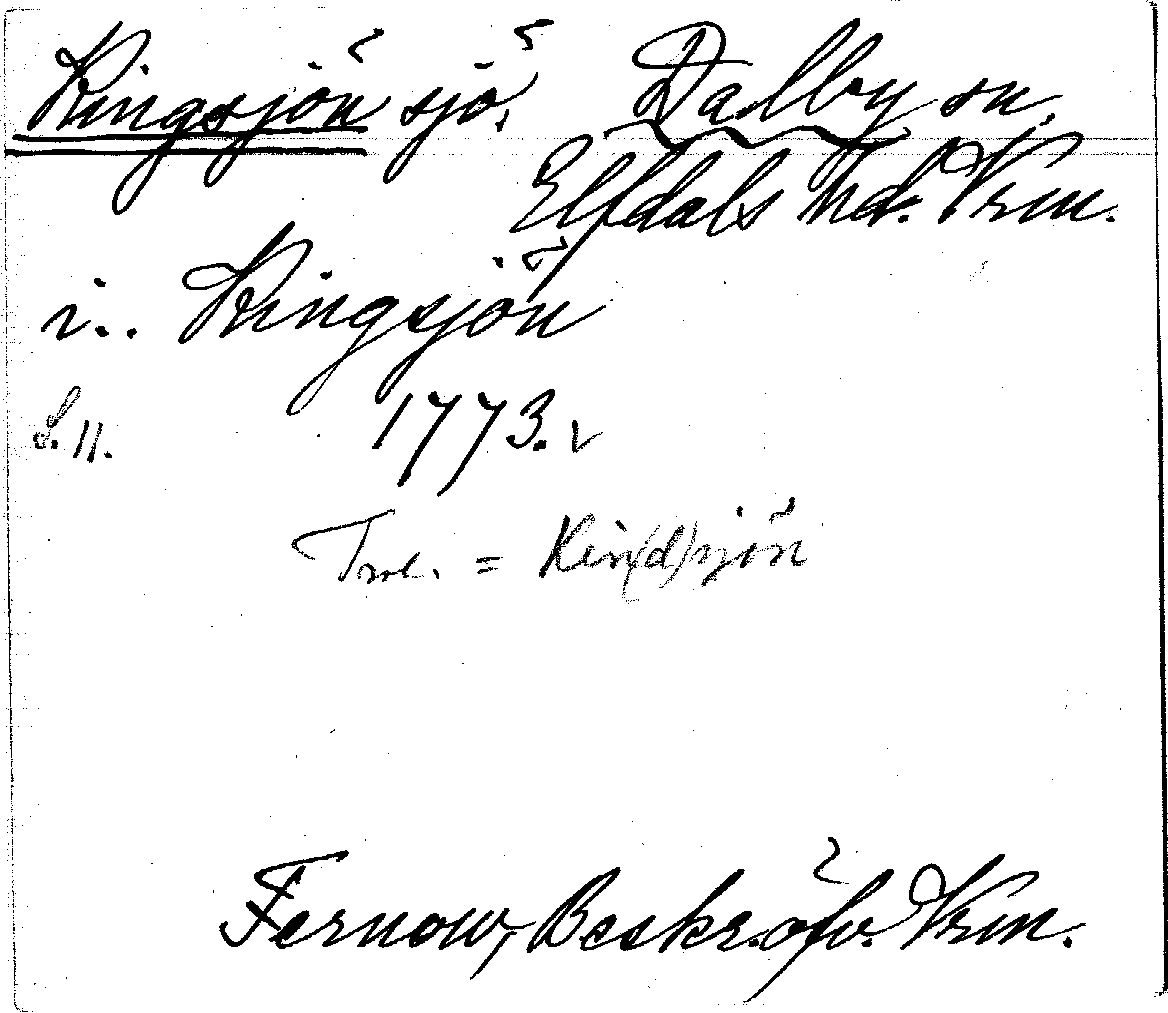 Kingsjön sjö. Dalby sn.
Elfdals hd. Vrm.
i.. Kingsjön
S. 11. 1773.
Trol. = Kin(d)sjön
Fernow, Beskr. öfv. Vrm.